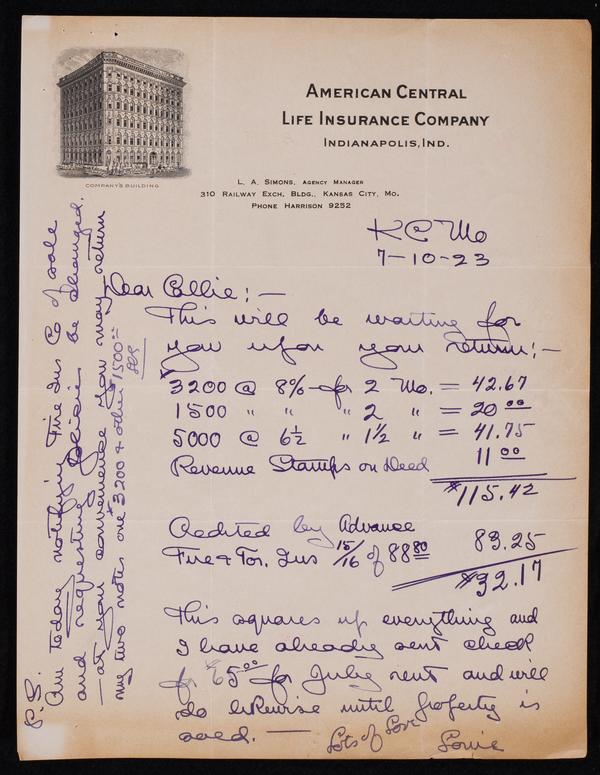 COMPANY'S BUILDING
AMERICAN CENTRAL
LIFE INSURANCE COMPANY
INDIANAPOLIS, IND.
L. A. SIMONS, AGENCY MANAGER
310 RAILWAY EXCH. BLDG., KANSAS CITY, MO.
PHONE HARRISON 9252
K C Mo
7-10-23
Dear Collie:—
This will be waiting for
you upon your return:—
$3200 @ 8% for 2 Mo. = 42.67
1500 " " " 2 " = 20 00
5000 @ 6½ " 1½ " = 41.75
Revenue Stamps on Deed 11 00
$115.42
Credited by Advance
Fire & Tor. Ins 15/16 of 88 80 83.25
$32.17
This squares up everything and
I have already sent check
for 65 00 for July rent and will
do likewise until property is
sold. — Lots of Love
P.S.
Am today notifying Fire Ins Co of sale
and requesting policies be changed.
— at your convenience you may return
my two notes one $3200 & other $1500 00